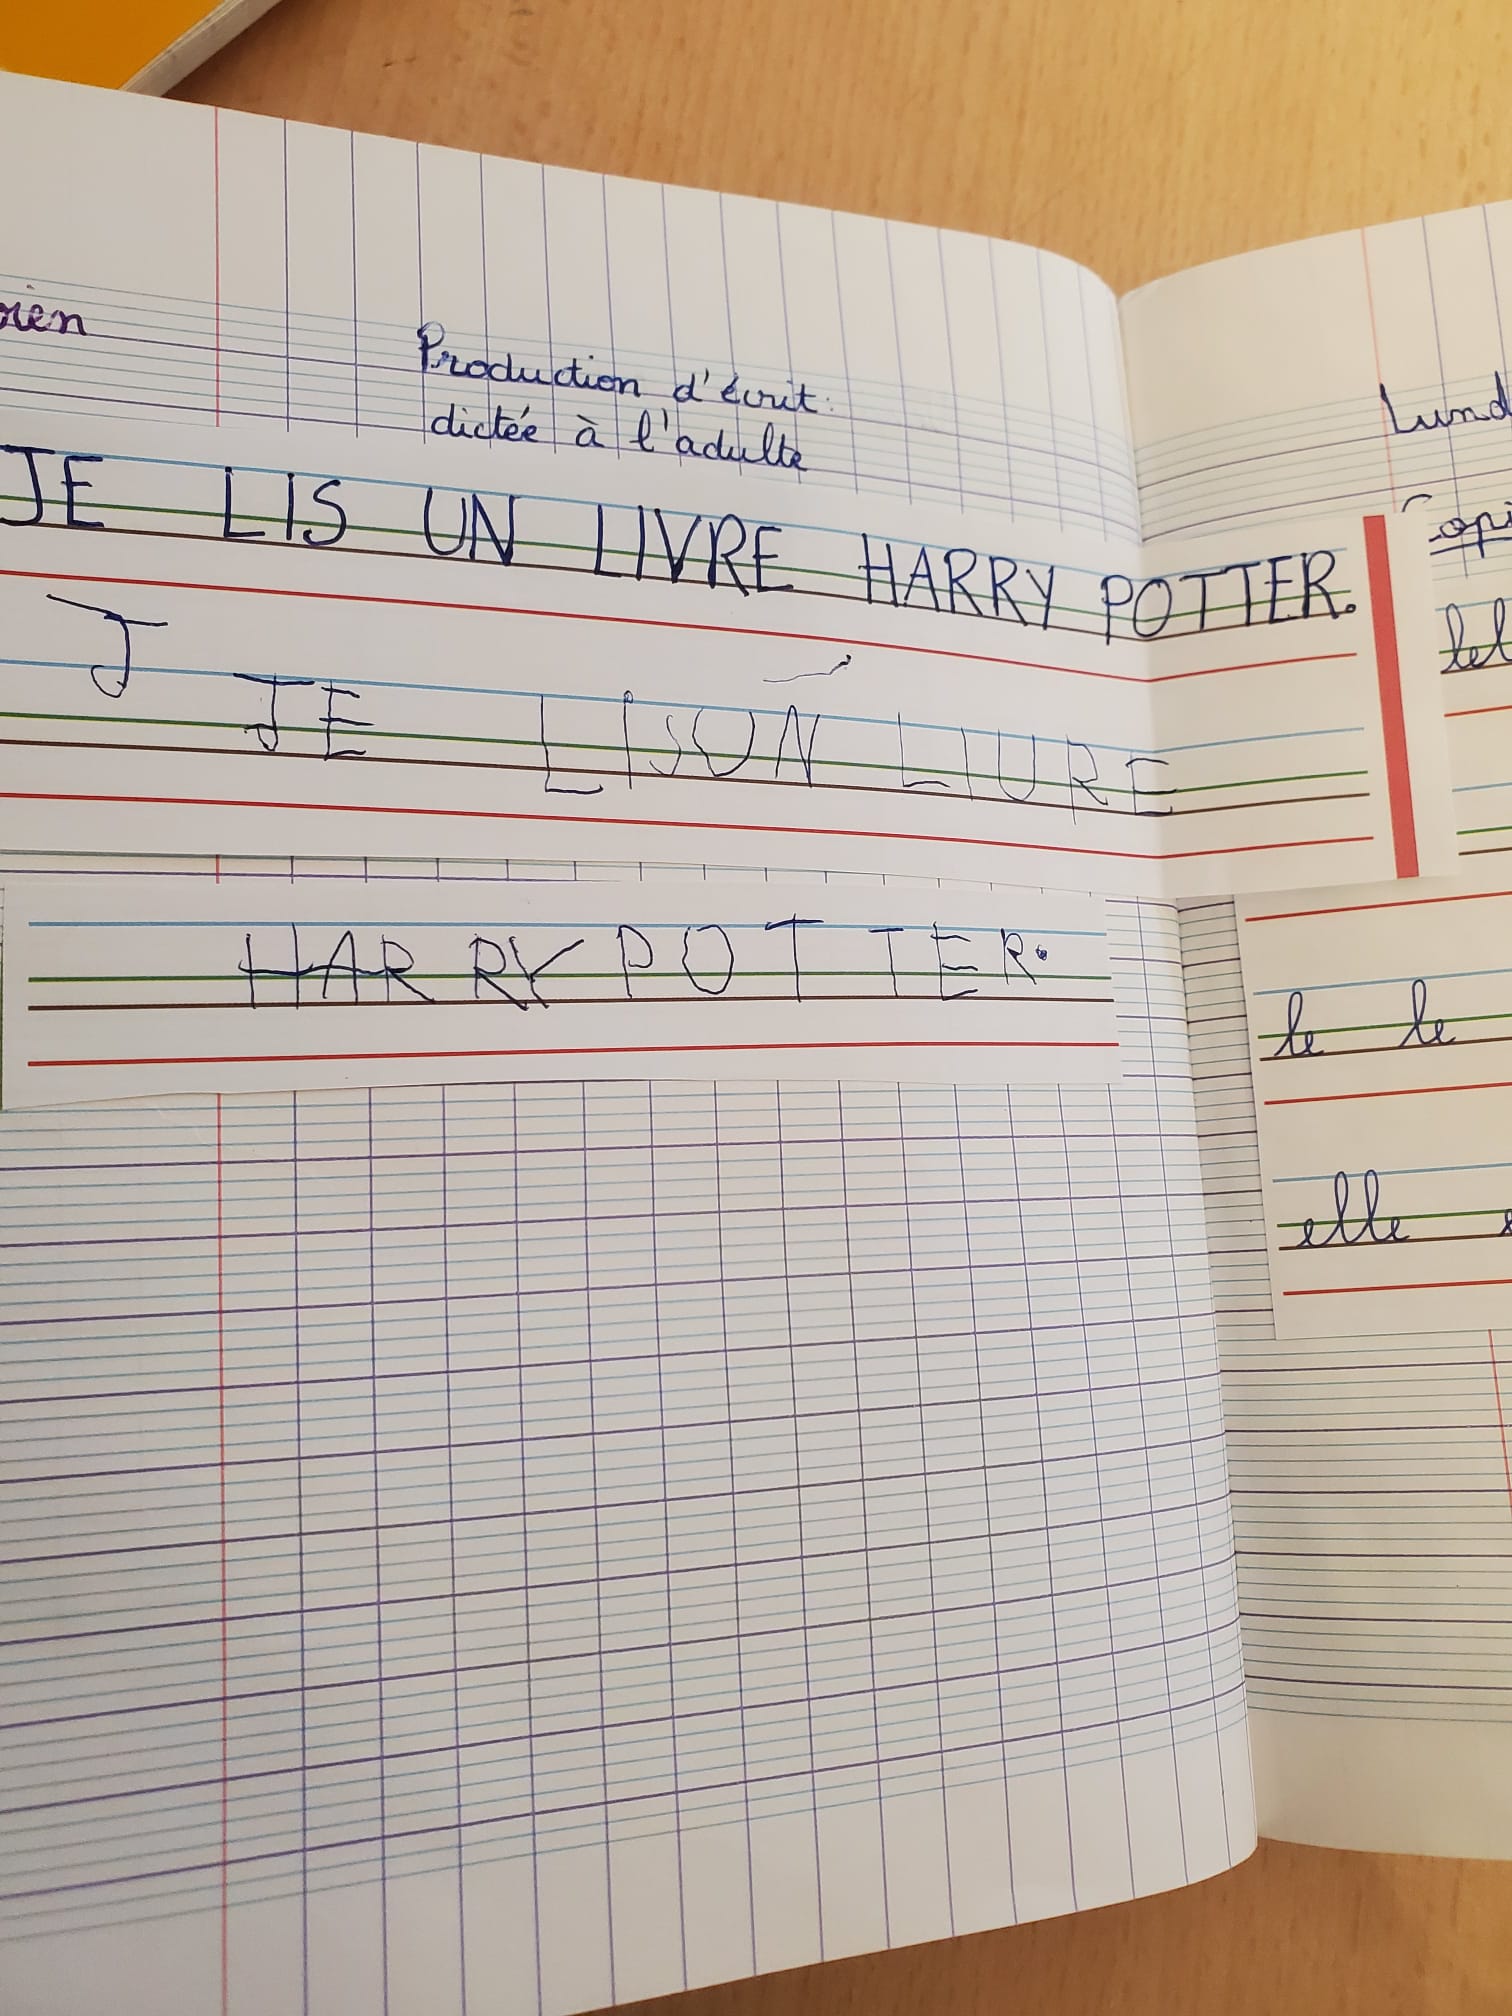 Production d'écrit:
dictée à l'adulte
JE LIS UN LIVRE HARRY POTTER.
J
JE LiSUN LIURE
HARRY POTTER.
le le
elle